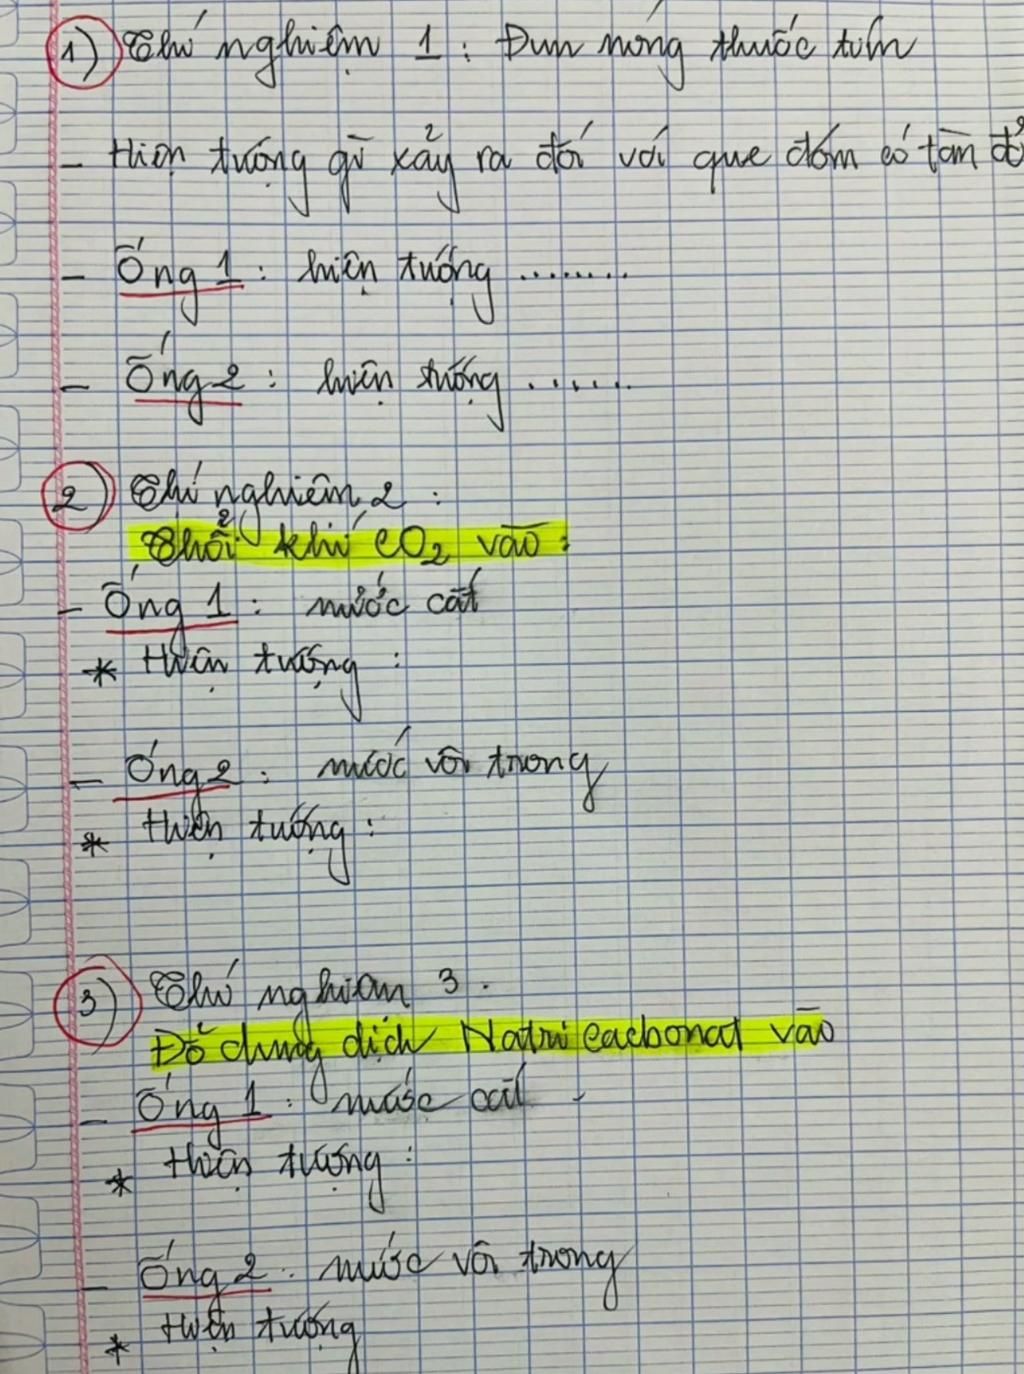 1) Thí nghiệm 1 : Đun nóng thuốc tím
- Hiện tượng gì xảy ra đối với que đóm có tàn đỏ
- Ống 1 : hiện tượng ........
- Ống 2 : hiện tượng ......
2) Thí nghiệm 2 :
Thổi khí CO2 vào :
- Ống 1 : nước cất
* Hiện tượng :
- Ống 2 : nước vôi trong
* Hiện tượng :
3) Thí nghiệm 3 .
Đổ dung dịch Natri cacbonat vào
- Ống 1 : nước cất .
* Hiện tượng :
- Ống 2 . nước vôi trong
* Hiện tượng